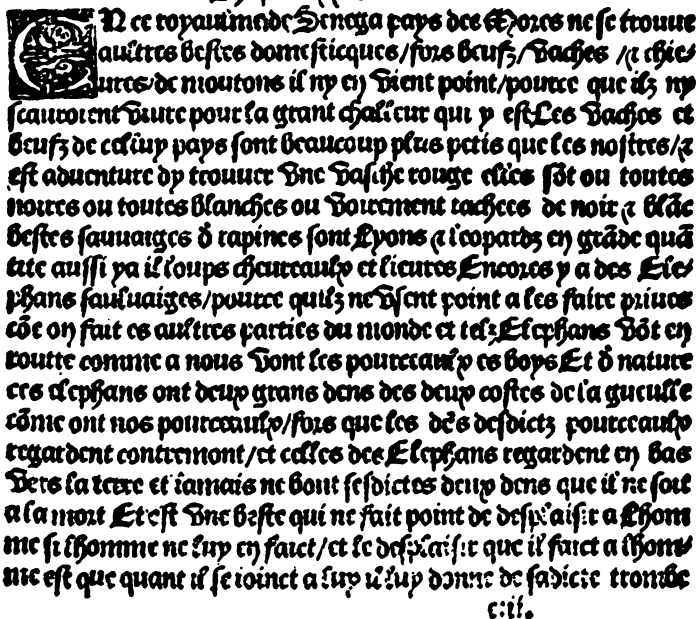 EN ce royaulme de Senega pays des Mores ne se trouue
aultres bestes domesticques/fors beufz/vaches /⁊ chie-
ures/de moutons il ny en vient point/pource que ilz ny
scauroient viure pour la grant chaleur qui y est Les vaches et
beufz de celluy pays sont beaucoup plus petis que les nostres/⁊
est aduenture dy trouuer vne vasche rouge elles sōt ou toutes
noires ou toutes blanches ou voirement tachees de noir ⁊ blāc
bestes sauuaiges d̄ rapines sont Lyons ⁊ leopardz en grāde quā
tite aussi ya il loups cheureaulx et lieures Encores y a des Ele-
phans sauluaiges/pource quilz ne vsent point a les faire priues
cōe on fait es aultres parties du monde et telz Elephans vōt en
routte comme a nous vont les pourceaulx es boys Et d̄ nature
ces elephans ont deux grans dens des deux costes de la gueulle
cōme ont nos pourceaulx/fors que les dēs desdictz pourceaulx
regardent contremont/et celles des Elephans regardent en bas
vers la terre et iamais ne vont sesdictes deux dens que il ne soit
a la mort Et est vne beste qui ne fait point de desplaisir a lhom
me si lhomme ne luy en faict/et le desplaisir que il faict a lhom-
me est que quant il se ioinct a luy il luy donne de sadicte trombe
c.ii.